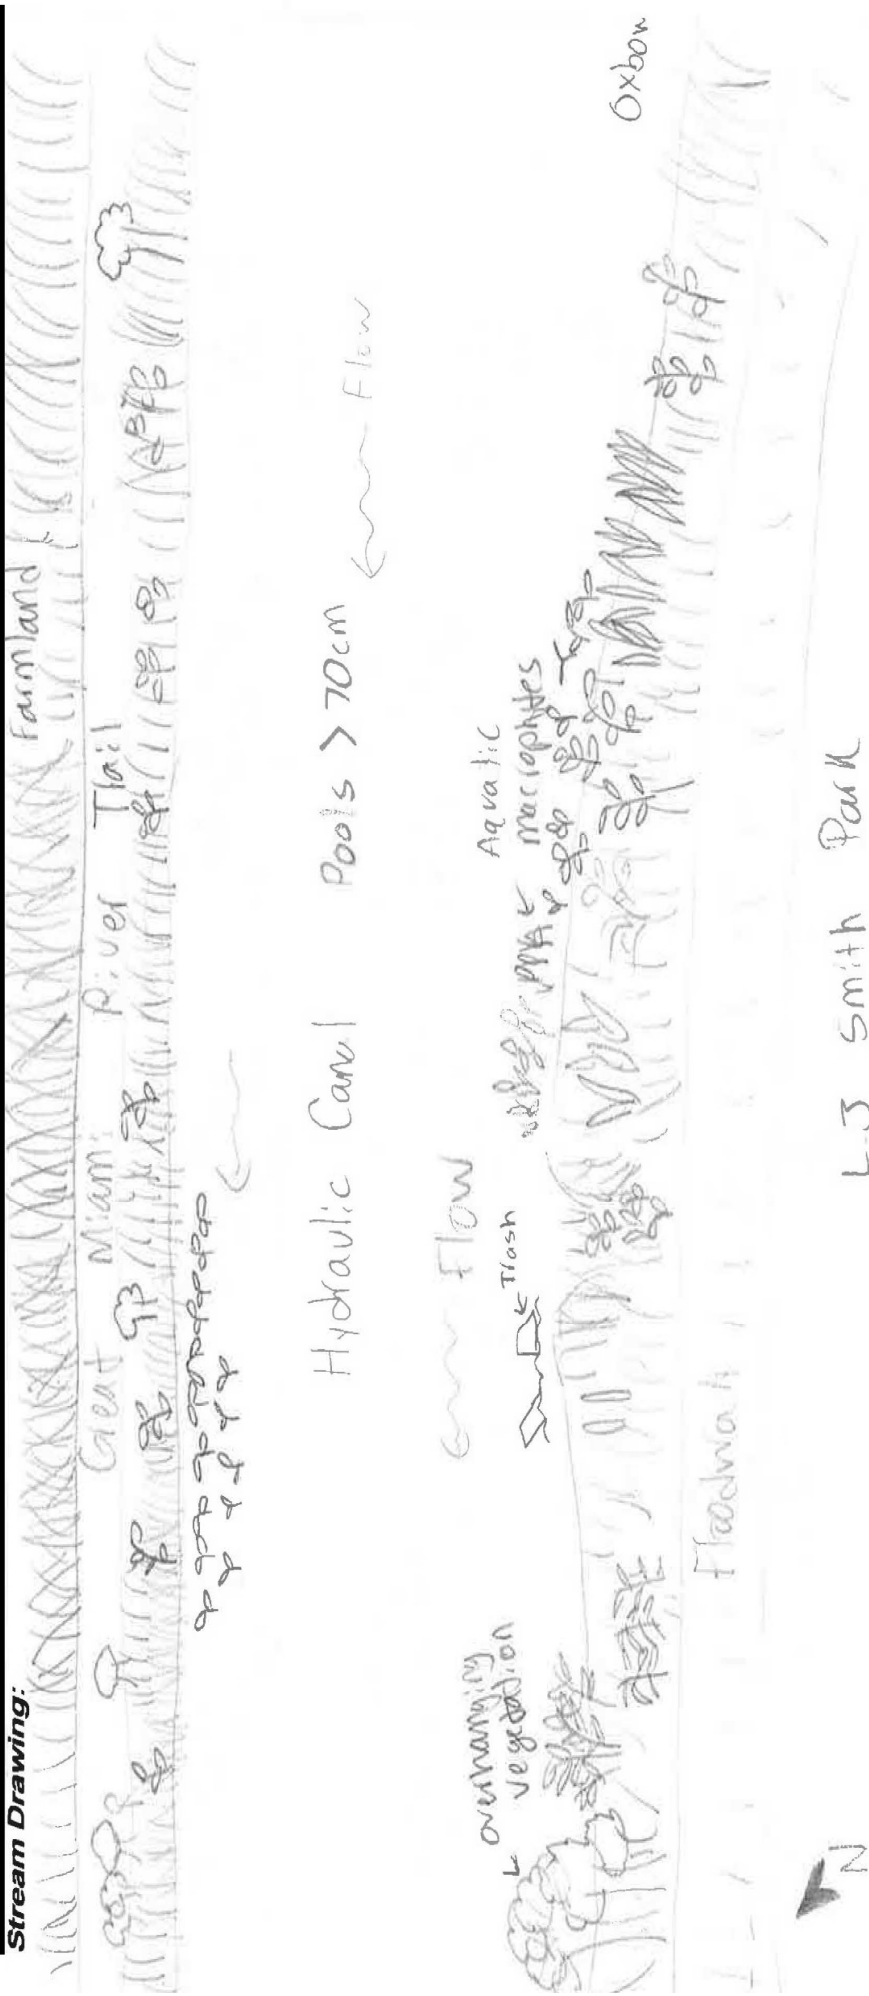 Stream Drawing:
Farmland
Great Miami River Trail
Flow
Hydraulic Canal Pools > 70cm
Flow
Aquatic
macrophytes
Trash
overhanging
vegetation
Oxbow
Floodwall
L.J Smith Park
N